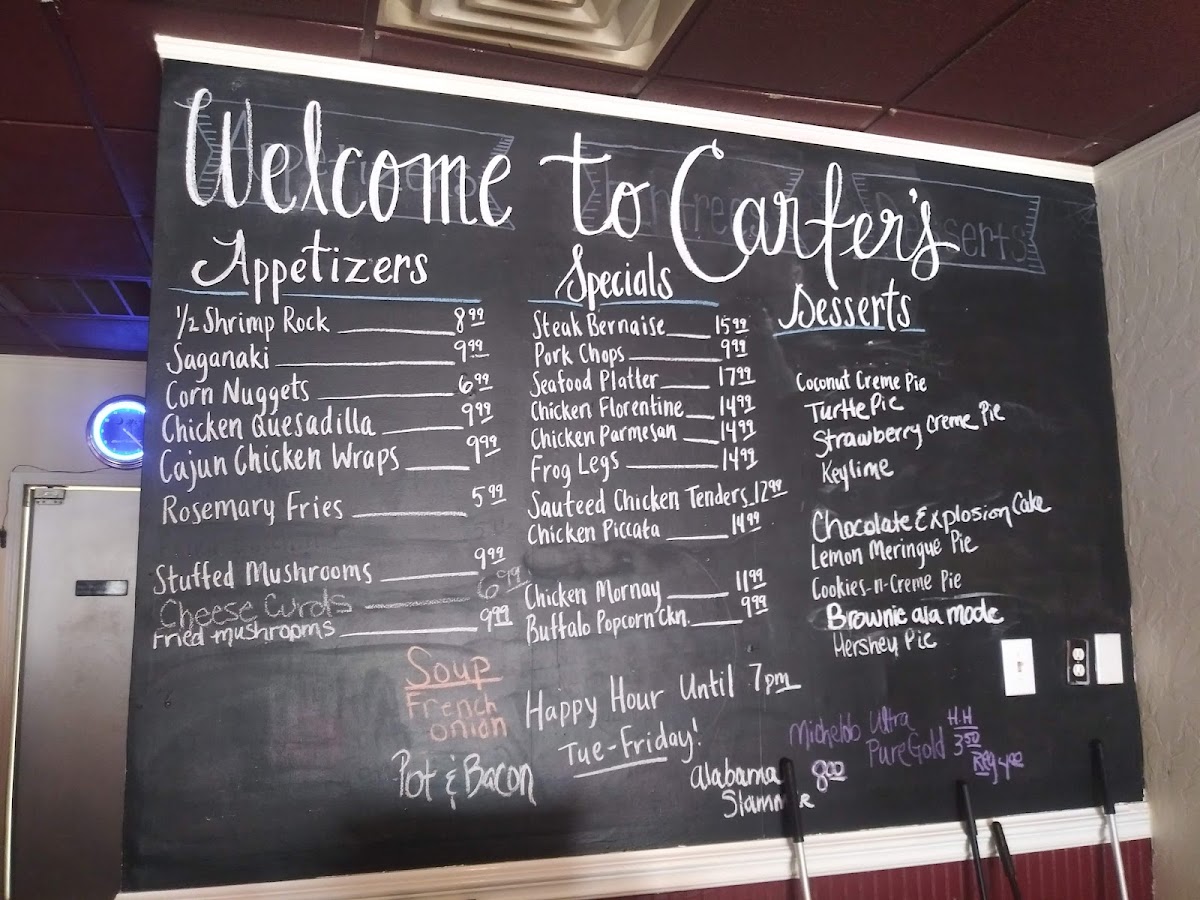 Welcome to Carfer's
Appetizers
1/2 Shrimp Rock 8.99
Saganaki 9.99
Corn Nuggets 6.99
Chicken Quesadilla 9.99
Cajun Chicken Wraps 9.99
Rosemary Fries 5.99
Stuffed Mushrooms 9.99
Cheese Curds 6.99
Fried mushrooms 9.99
Soup
French
onion
Pot & Bacon
Specials
Steak Bernaise 15.99
Pork Chops 9.99
Seafood Platter 17.99
Chicken Florentine 14.99
Chicken Parmesan 14.99
Frog Legs 14.99
Sauteed Chicken Tenders 12.99
Chicken Piccata 14.99
Chicken Mornay 11.99
Buffalo Popcorn Ckn. 9.99
Happy Hour Until 7pm
Tue-Friday!
Alabama 8.00
Slammer
Desserts
Coconut Creme Pie
Turtle Pie
Strawberry Creme Pie
Keylime
Chocolate Explosion Cake
Lemon Meringue Pie
Cookies-n-Creme Pie
Brownie ala mode
Hershey Pie
Michelob Ultra H.H
PureGold 3.50
Reg 4.00
Appetizers
Entrees
Desserts